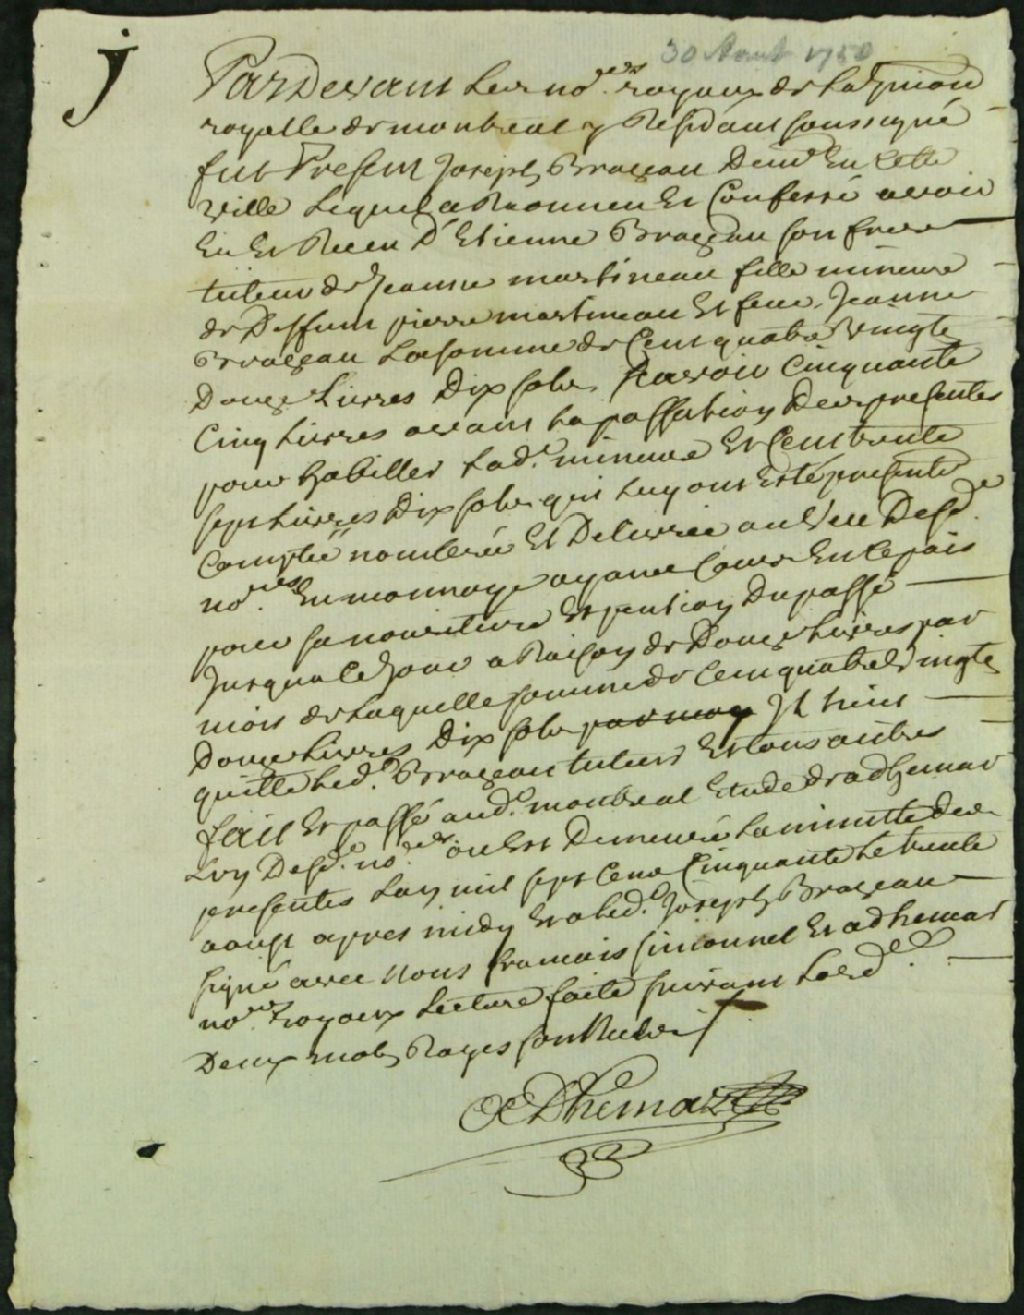 j
30 Aout 1750
Pardevant Les no.res royaux de La Jurisdiction
royalle de montreal y Residant soussigné
fut Present Joseph Brazeau Demt En Cette
Ville Lequel a Reconneu Et Confessé avoir
Eu Et Receu D'Etienne Brazeau son frere
tuteur de Jeanne martineau fille mineure
de Deffunt pierre martineau Et feue Jeanne
Brazeau La somme de Cent quatre Vingts
Douze Livres Dix sols, Scavoir Cinquante
Cinq Livres avant La passation Des presentes
pour habiller Lade. mineure Et Cent trente
sept Livres Dix sols qui Luy ont Esté presentt
Comptée nombrée Et Delivrée au Veu Desd.
no.res En monnoye ayant Cours En Ce païs
pour sa nouriture Et pention Du passé
Jusqua Ce Jour a Raison de Douze Livres par
mois de Laquelle somme de Cent quatre Vingts
Douze Livres Dix sols par moy Il tient
quitte Led. Brazeau tuteur Et tous autres
fait Et passé aud. montreal Etude de adhemar
L'un Desd. no.res ou Est Demeurée La minutte des
presentes L'an mil sept Cent Cinquante Le trente
aoust apres midy Et a Led. Joseph Brazeau
signé avec nous francois simonnet Et adhemar
no.res royaux Lecture faite suivant Lord.ce
Deux mots Rayes sont Nuls
Adhemar